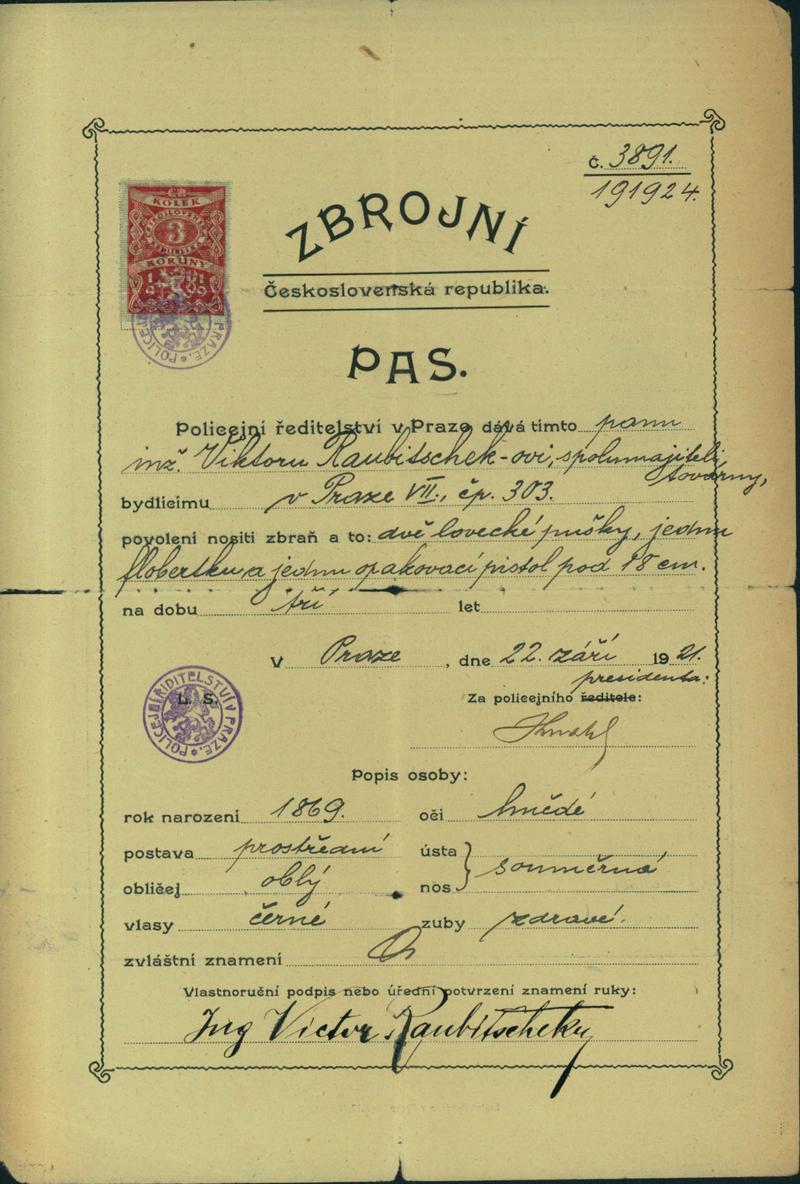 č. 3891.
191924.
KOLEK
3
KORUNY
ZBROJNÍ
Československá republika.
PAS.
Policejní ředitelství v Praze dává tímto panu
inž. Viktoru Raubitschek-ovi, spolumajiteli
továrny,
bydlícímu v Praze VII., čp. 303.
povolení nositi zbraň a to: dvě lovecké pušky, jednu
flobertku a jednu opakovací pistol pod 18 cm.
na dobu tří let
V Praze, dne 22. září 1921.
presidenta:
Za policejního ředitele:
L. S.
POLICEJNÍ ŘEDITELSTVÍ V PRAZE.
Popis osoby:
rok narození 1869. oči hnědé
postava prostřední ústa
souměrná
obličej oblý nos
vlasy černé zuby zdravé.
zvláštní znamení
Vlastnoruční podpis nebo úřední potvrzení znamení ruky:
Ing Victor Raubitschek